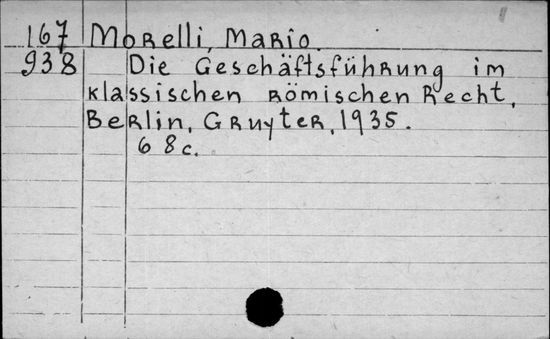 167 Morelli, Mario.
938 Die Geschäftsführung im
klassischen römischen Recht,
Berlin, Gruyter, 1935.
68 c.